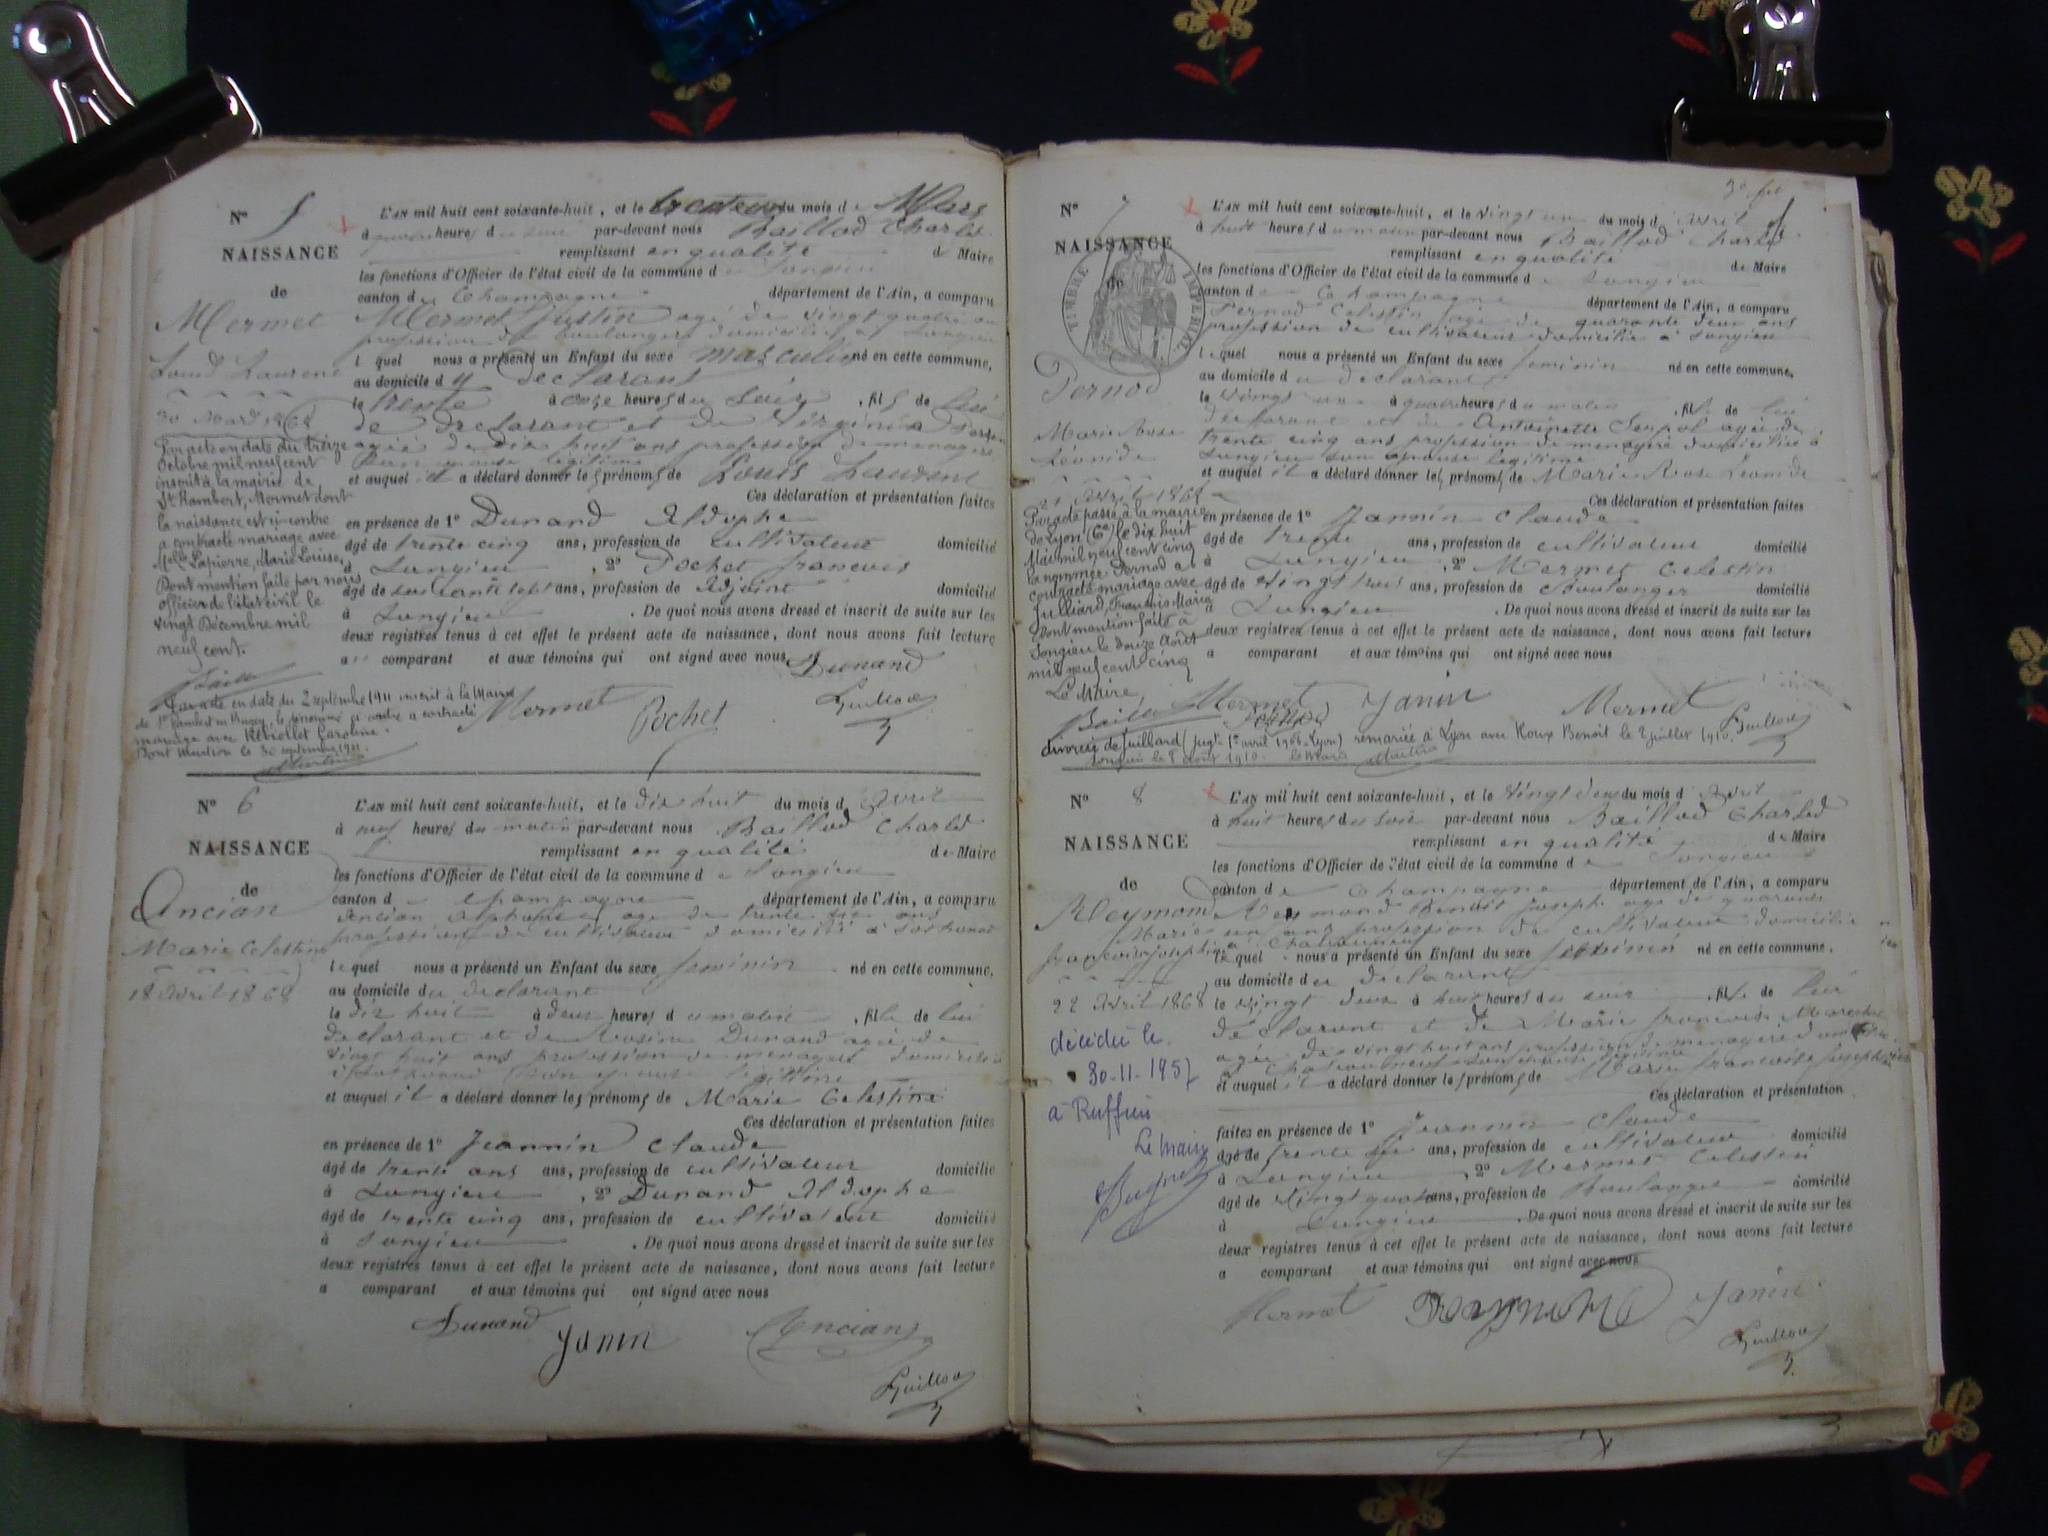 N° 5
NAISSANCE
de
Mermet
Louis Laurent
30 Mars 1868
Par acte en date du treize
Octobre mil neuf cent
inscrit à la mairie de
St Rambert, Mermet dont
la naissance est ci-contre
a contracté mariage avec
Melle Lapierre, Marie Louise,
Dont mention faite par nous
officier de l'état civil le
vingt Décembre mil
neuf cent.
Par acte en date du 2 septembre 1911 inscrit à la Mairie
de St Rambert en Bugey, le prénommé ci contre a contracté
mariage avec Caroline.
Dont mention le 30 septembre 1911.
L'AN mil huit cent soixante-huit, et le du mois de Mars
à heures du soir par-devant nous Baillod Charles
remplissant en qualité de Maire
les fonctions d'Officier de l'état civil de la commune de Songieu
canton de Champagne département de l'Ain, a comparu
Mermet Justin agé de vingt quatre ans
profession de boulanger domicilié à Songieu
lequel nous a présenté un Enfant du sexe masculin né en cette commune,
au domicile du déclarant
le trente à onze heures du soir, fils de lui
declarant et de Virginie
agée de dix huit ans profession de menagere
son epouse légitime
et auquel il a déclaré donner les prénoms de Louis Laurent
Ces déclaration et présentation faites
en présence de 1° Dunand Aldophe
âgé de trente cinq ans, profession de cultivateur domicilié
à Songieu, 2° Pochet francois
âgé de soixante sept ans, profession de Adjoint domicilié
à Songieu. De quoi nous avons dressé et inscrit de suite sur les
deux registres tenus à cet effet le présent acte de naissance, dont nous avons fait lecture
a comparant et aux témoins qui ont signé avec nous
Dunand
Mermet Pochet
N° 6
NAISSANCE
de
Ancian
Marie Celestine
18 Avril 1868
L'AN mil huit cent soixante-huit, et le dix huit du mois d Avril
à neuf heures du matin par-devant nous Baillod Charles
remplissant en qualité de Maire
les fonctions d'Officier de l'état civil de la commune de Songieu
canton de Champagne département de l'Ain, a comparu
Ancian Alphonse age de trente ans
profession de cultivateur domicilié à Sothonod
lequel nous a présenté un Enfant du sexe feminin né en cette commune,
au domicile du declarant
le dix huit à deux heures du matin, fille de lui
declarant et de Rosine Dunand agée de
vingt huit ans profession de menagere domiciliée
à Sothonod son epouse légitime
et auquel il a déclaré donner les prénoms de Marie Celestine
Ces déclaration et présentation faites
en présence de 1° Jeannin Claude
âgé de trente ans ans, profession de cultivateur domicilié
à Songieu, 2° Dunand Aldophe
âgé de trente cinq ans, profession de cultivateur domicilié
à Songieu. De quoi nous avons dressé et inscrit de suite sur les
deux registres tenus à cet effet le présent acte de naissance, dont nous avons fait lecture
a comparant et aux témoins qui ont signé avec nous
Dunand Janin Ancian
N° 7
NAISSANCE
de
TIMBRE IMPERIAL
Pernod
Marie Rose
Léonide
21 Avril 1868
Par acte passé à la mairie
de Lyon (6e) le dix huit
Mai mil neuf cent cinq
la nommée Pernod a
contracté mariage avec
Juilliard, François Marie
Dont mention faite à
Songieu le douze Août
mil neuf cent cinq
Le Maire
L'AN mil huit cent soixante-huit, et le vingt un du mois d Avril
à huit heures du matin par-devant nous Baillod Charles
remplissant en qualité de Maire
les fonctions d'Officier de l'état civil de la commune de Songieu
canton de Champagne département de l'Ain, a comparu
Pernod Celestin agé de quarante deux ans
profession de cultivateur domicilié à Songieu
lequel nous a présenté un Enfant du sexe feminin né en cette commune,
au domicile du declarant
le vingt un à quatre heures du matin, fille de lui
déclarant et de Antoinette Serpol agée de
trente cinq ans profession de menagere domiciliée à
Songieu son epouse legitime
et auquel il a déclaré donner les prénoms de Marie Rose Leonide
Ces déclaration et présentation faites
en présence de 1° Jannin Claude
âgé de trente ans, profession de cultivateur domicilié
à Songieu, 2° Mermet Celestin
âgé de vingt trois ans, profession de Boulanger domicilié
à Songieu. De quoi nous avons dressé et inscrit de suite sur les
deux registres tenus à cet effet le présent acte de naissance, dont nous avons fait lecture
a comparant et aux témoins qui ont signé avec nous
Mermet Janin Mermet
divorcée de Juillard (jugt 1er avril 1908 Lyon) remariée à Lyon avec Roux Benoit le 2 juillet 1910.
Songieu le 8 Aout 1910. le Maire
N° 8
NAISSANCE
de
Reymond
Marie
françoise joséphine
22 Avril 1868
décédée le
30-11-1957
à Ruffieu
Le Maire
L'AN mil huit cent soixante-huit, et le vingt deux du mois d Avril
à huit heures du soir par-devant nous Baillod Charles
remplissant en qualité de Maire
les fonctions d'Officier de l'état civil de la commune de Songieu
canton de Champagne département de l'Ain, a comparu
Reymond Benoit Joseph age de quarante
un ans profession de cultivateur domicilié
à Chateauneuf
lequel nous a présenté un Enfant du sexe feminin né en cette commune.
au domicile du declarant
le vingt deux à huit heures du soir, fille de lui
déclarant et de Marie francoise
agée de vingt huit ans profession de menagere domiciliée
à Chateauneuf son epouse légitime
et auquel il a déclaré donner les prénoms de Marie francoise josephine
Ces déclaration et présentation
faites en présence de 1° Jeannin Claude
âgé de trente ans, profession de cultivateur domicilié
à Songieu, 2° Mermet Celestin
âgé de vingt quatre ans, profession de Boulanger domicilié
à Songieu. De quoi nous avons dressé et inscrit de suite sur les
deux registres tenus à cet effet le présent acte de naissance, dont nous avons fait lecture
a comparant et aux témoins qui ont signé avec nous
Mermet Janin